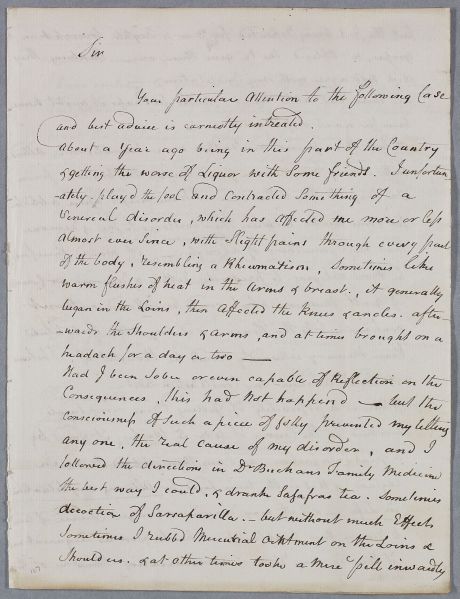 Sir
Your particular Attention to the following Case
and best advice is earnestly intreated.
About a Year ago being in this part of the Country
& getting the worse of Liquor with Some friends. I unfortun
ately play'd the fool and Contracted Something of a
Venereal disorder, which has affected me more or less
almost ever Since, with Slight pains through every part
of the body, resembling a Rheumatism, Sometimes like
warm flushes of heat in the Arms & breast, it generally
began in the Loins, then Affected the knees & ancles. after
-wards the Shoulders & arms, and at times brought on a
headach for a day or two —
Had I been Sober or even capable of Reflection on the
Consequences, this had Not happend — but the
Consciousness of Such a piece of folly prevented my letting
any one, the real cause of my disorder, and I
followed the directions in Dr Buchans Family Medicine
the best way I could, & drank Sasafras tea. Sometimes
decoction of Sarsaparilla. - but without much Effect
Sometimes I rubbd Mercurial Ointment on the Loins &
Shoulders. & at other times tooke a Merc pill inwardly